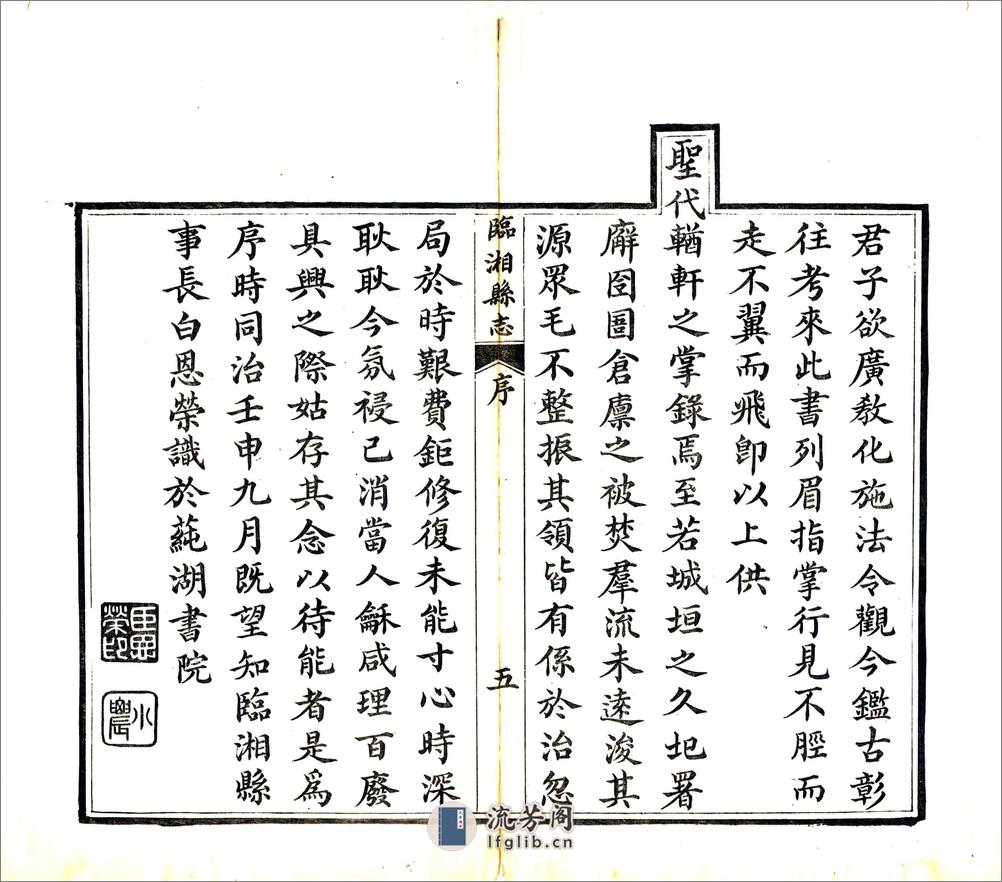 君子欲廣敎化施法令觀今鑑古彰
往考來此書列眉指掌行見不脛而
走不翼而飛卽以上供
聖代輶軒之掌錄焉至若城垣之久圯署
廨囹圄倉廪之被焚羣流未遠浚其
源眾毛不整振其領皆有係於治忽
臨湘縣志
序
五
局於時艱費鉅修復未能寸心時深
耿耿今氛祲已消當人龢咸理百廢
具興之際姑存其念以待能者是爲
序時同治壬申九月既望知臨湘縣
事長白恩榮識於蒓湖書院
恩榮印
小農
流芳阁
lfglib.cn